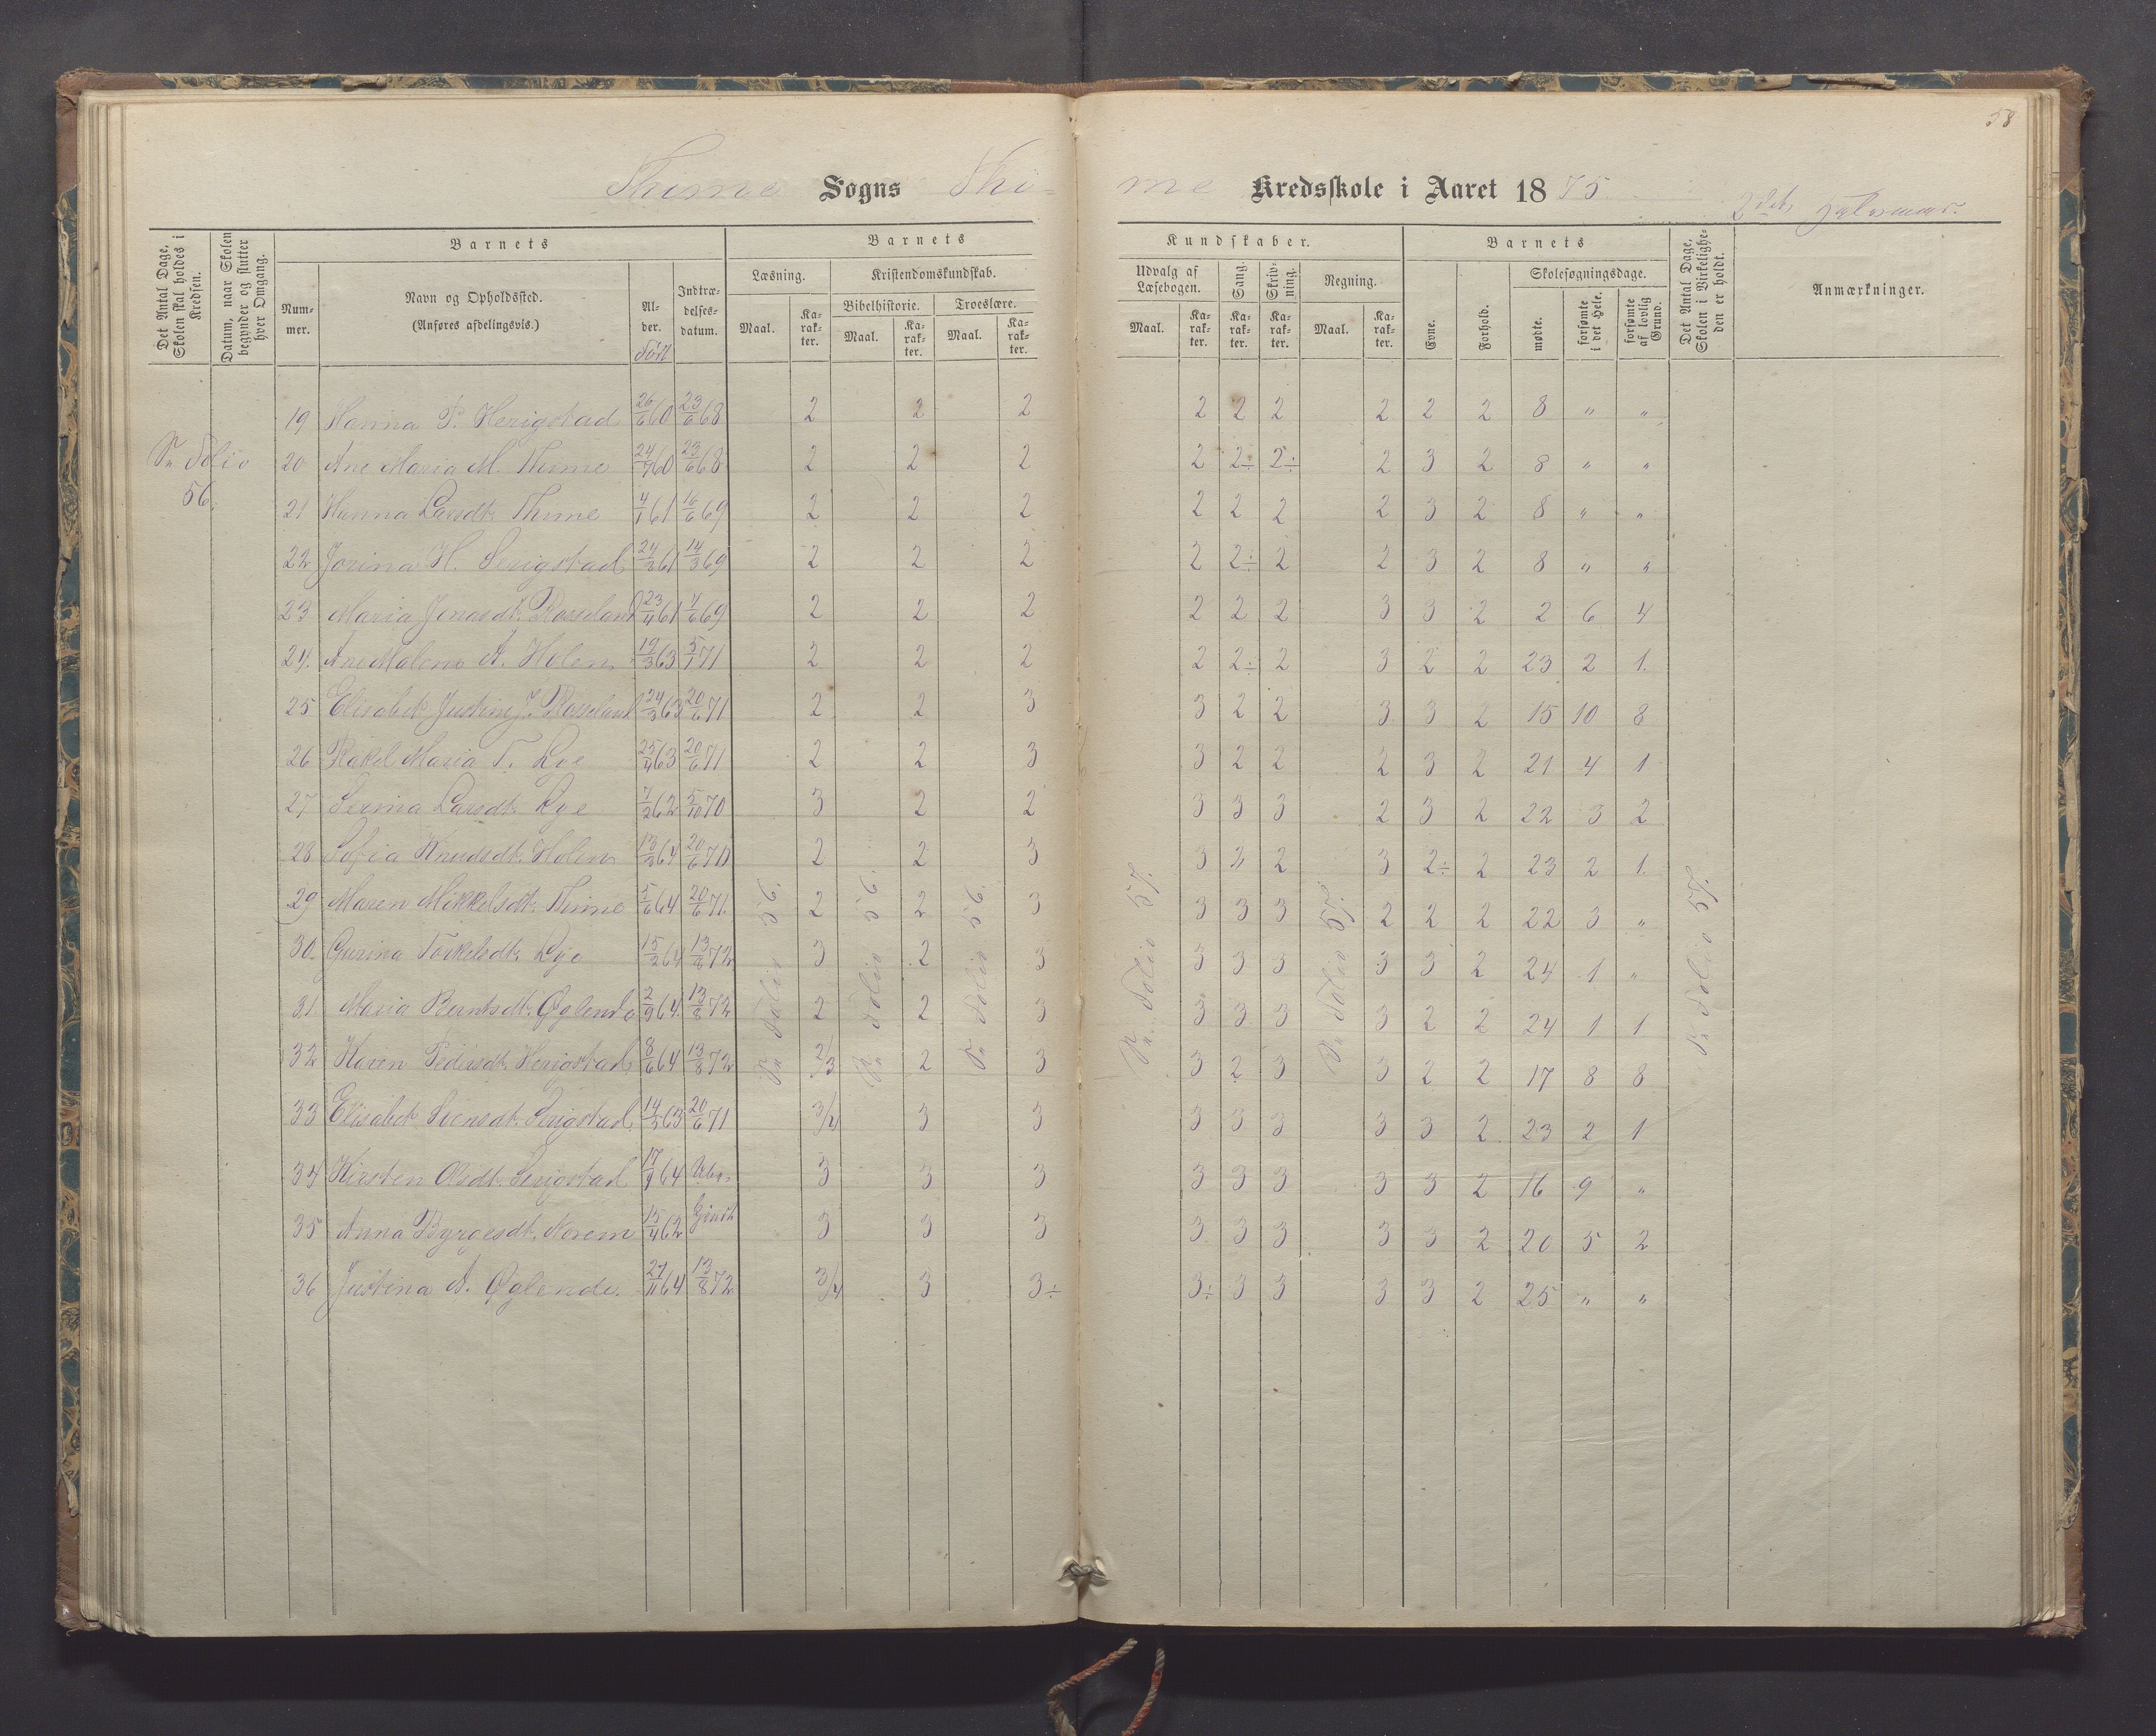 58
Thime Sogns Thi-
me Kredsskole i Aaret 1875.
2det Halvaar.
Det Antal Dage, Skolen skal holdes i Kredsen.
Datum, naar Skolen begynder og slutter hver Omgang.
Barnets
Num-mer.
Navn og Opholdssted.
(Anføres afdelingsvis.)
Al-der.
Født
Indtræ-delses-datum.
Barnets
Læsning.
Maal.
Ka-rak-ter.
Kristendomskundskab.
Bibelhistorie.
Maal.
Ka-rak-ter.
Troeslære.
Maal.
Ka-rak-ter.
Kundskaber.
Udvalg af Læsebogen.
Maal.
Ka-rak-ter.
Sang.
Ka-rak-ter.
Skriv-ning.
Ka-rak-ter.
Regning.
Maal.
Ka-rak-ter.
Barnets
Evne.
Forhold.
Skolesøgningsdage.
mødte.
forsømte i det Hele.
forsømte af lovlig Grund.
Det Antal Dage, Skolen i Virkelighe-den er holdt.
Anmærkninger.
Folio
56.
19 Hanna P. Herigstad 26/6 60 23/6 68 2 2 2 2 2 2 2 2 2 8 " "
20 Ane Maria M. Thime 24/7 60 23/6 68 2 2 2 2 2÷ 2÷ 2 3 2 8 " "
21 Hanna Larsdt. Thime 4/1 61 16/6 69 2 2 2 2 2 2 2 3 2 8 " "
22 Jorina H. Serigstad 24/3 61 14/3 69 2 2 2 2 2÷ 2 2 3 2 8 " "
23 Maria Jonasdt. Rosseland 23/4 61 4/6 69 2 2 2 2 2 2 3 3 2 2 6 4
24. Ane Malene A. Holen 19/3 63 5/1 71 2 2 2 2 2÷ 2 3 2 2 23 2 1.
25 Elisabet Justine J. Rosseland 24/3 63 20/6 71 2 2 3 3 2 2 3 3 2 15 10 8
26 Rakel Maria T. Lye 25/4 63 20/6 71 2 2 3 3 2 2 2 3 2 21 4 1
27 Serina Larsdt. Lye 7/2 62 5/10 70 3 2 2 3 3 3 2 3 2 22 3 2
28 Sofia Knudsdt. Holen 13/3 64 20/6 71 2 2 3 3 2 2 3 2÷ 2 23 2 1.
29 Maren Mikkelsdt. Thime 5/6 64 20/6 71. 2 2 3 3 3 3 2 2 2 22 3 "
30. Gurina Torkelsdt. Lye 15/2 64 13/8 72 3 2 3 3 3 3 3 3 2 24 1 "
31 Maria Berntsdt. Øglende 2/9 64. 13/8 72 2 2 3 3 3 3 3 2 2 24 1 1
32 Karen Pedersdt. Herigstad 8/6 64 13/8 72 2/3 2 3 3 2 3 3 2 2 17 8 8
33 Elisabet Svensdt. Serigstad 14/5 63 20/6 71 3/4 3 3 3 3 3 3 3 2 23 2 1
34 Kirsten Olsdt. Serigstad 17/9 64 3 3 3 3 3 3 3 3 2 16 9 "
35 Anna Byrgesdt. Norem 15/4 62 3 3 3 3 3 3 3 3 2 20 5 2
36 Justina A. Øglende. 27/11 64 13/8 72 3/4 3 3÷ 3÷ 3 3 3 3 2 25 " "
Folio 56.
Folio 56.
Folio 56.
Folio 57.
Folio 57.
Folio 57.